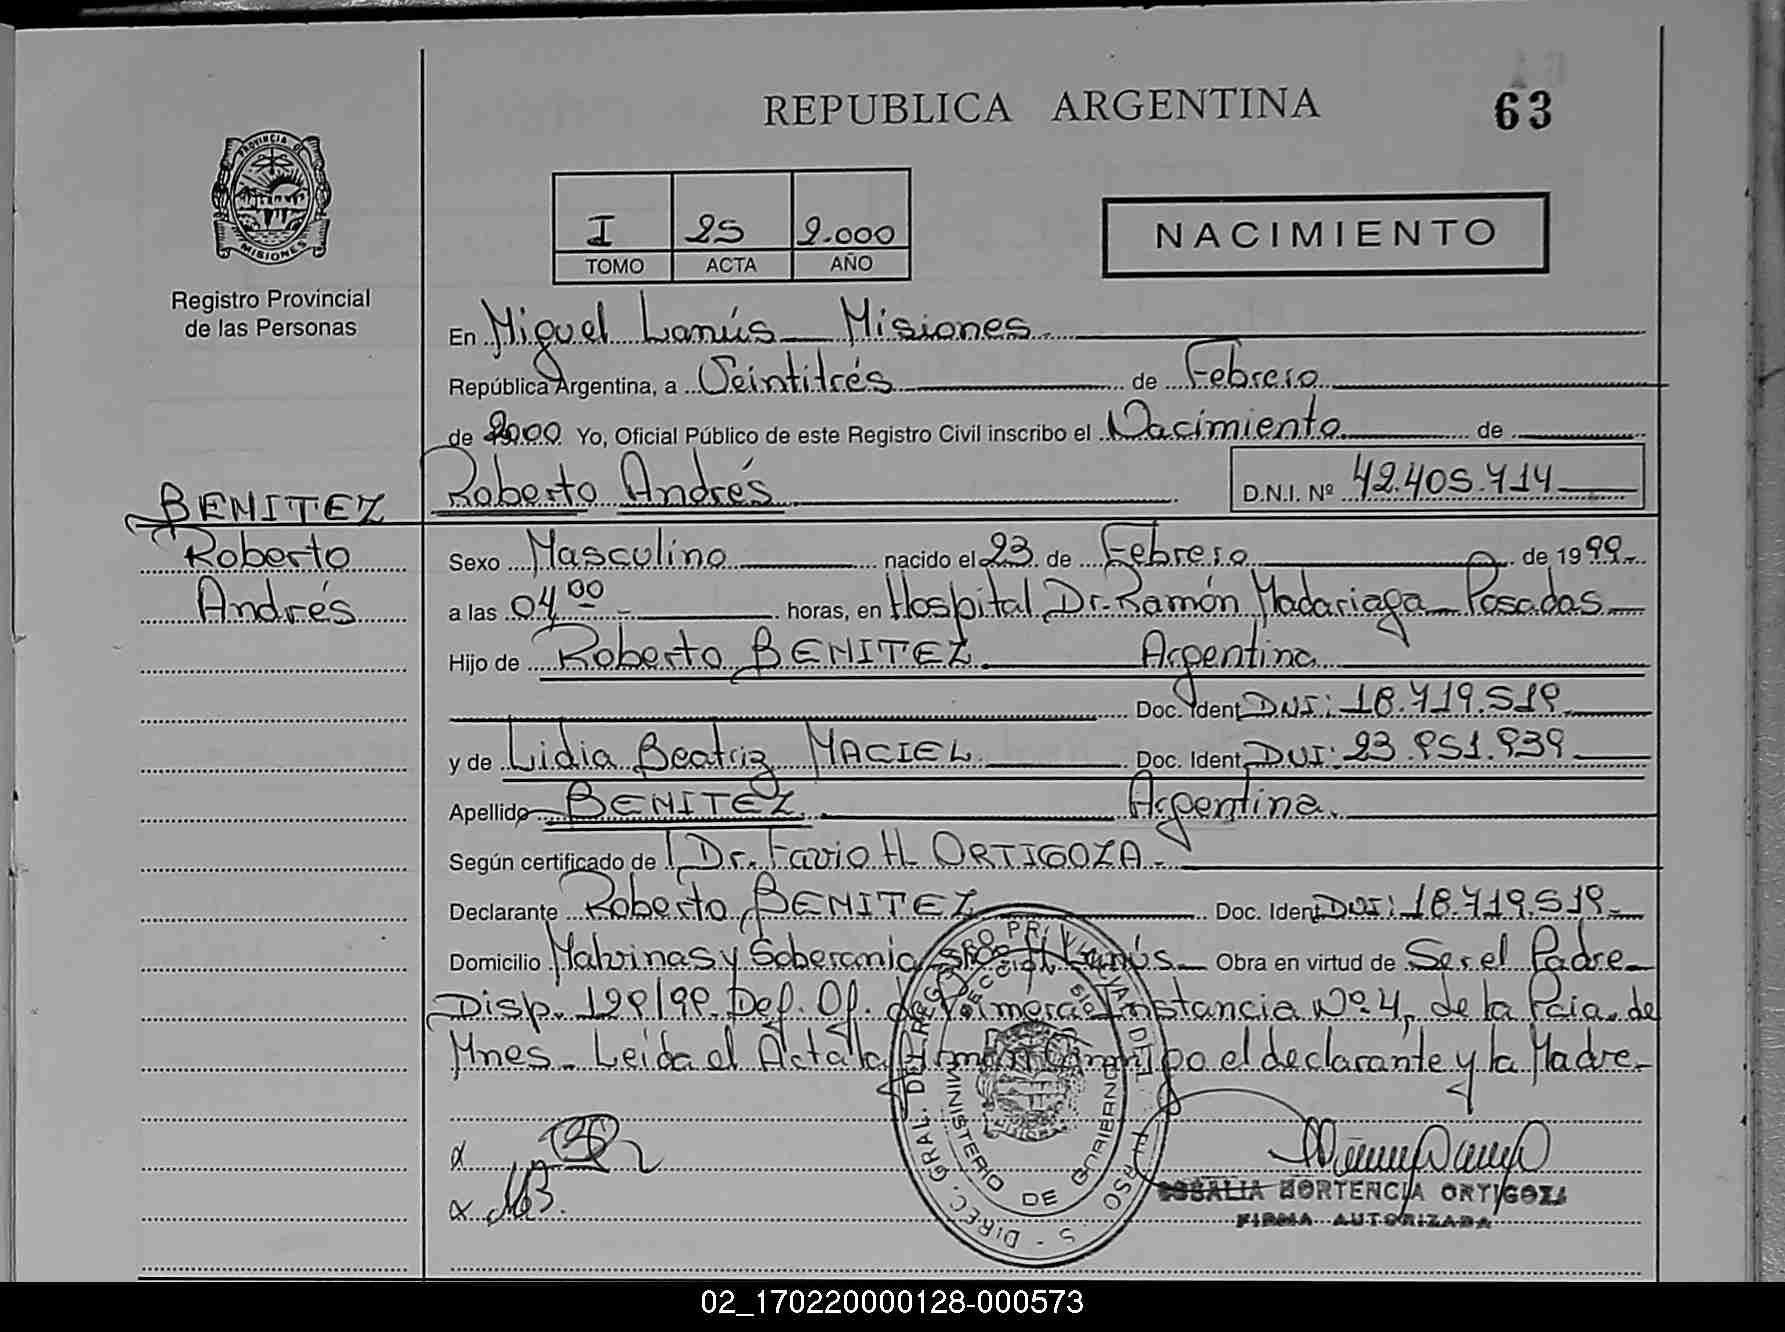 REPUBLICA ARGENTINA
63
PROVINCIA DE
MISIONES
Registro Provincial
de las Personas
I 25 2.000
TOMO ACTA AÑO
NACIMIENTO
En Miguel Lanús Misiones
República Argentina, a Veintitrés de Febrero
de 2000 Yo, Oficial Público de este Registro Civil inscribo el Nacimiento de
BENITEZ
Roberto
Andrés
Roberto Andrés
D.N.I. Nº 42.405.714
Sexo Masculino nacido el 23 de Febrero de 1999
a las 04 00 horas, en Hospital Dr. Ramón Madariaga Posadas
Hijo de Roberto BENITEZ Argentina
Doc. Ident DNI: 18.719.519
y de Lidia Beatriz MACIEL Doc. Ident DNI: 23.951.939
Apellido BENITEZ Argentina
Según certificado de Dr. Favio H. ORTIGOZA
Declarante Roberto BENITEZ Doc. Ident DNI: 18.719.519
Domicilio Malvinas y Soberania Lanús Obra en virtud de Ser el Padre
Disp. 129/99. Def. Of. de Primera Instancia Nº 4, de la Pcia. de
Mnes. Leída el Acta la firman conmigo el declarante y la Madre
MINISTERIO DE GOBIERNO
ROSALIA HORTENCIA ORTIGOZA
FIRMA AUTORIZADA
02_170220000128-000573